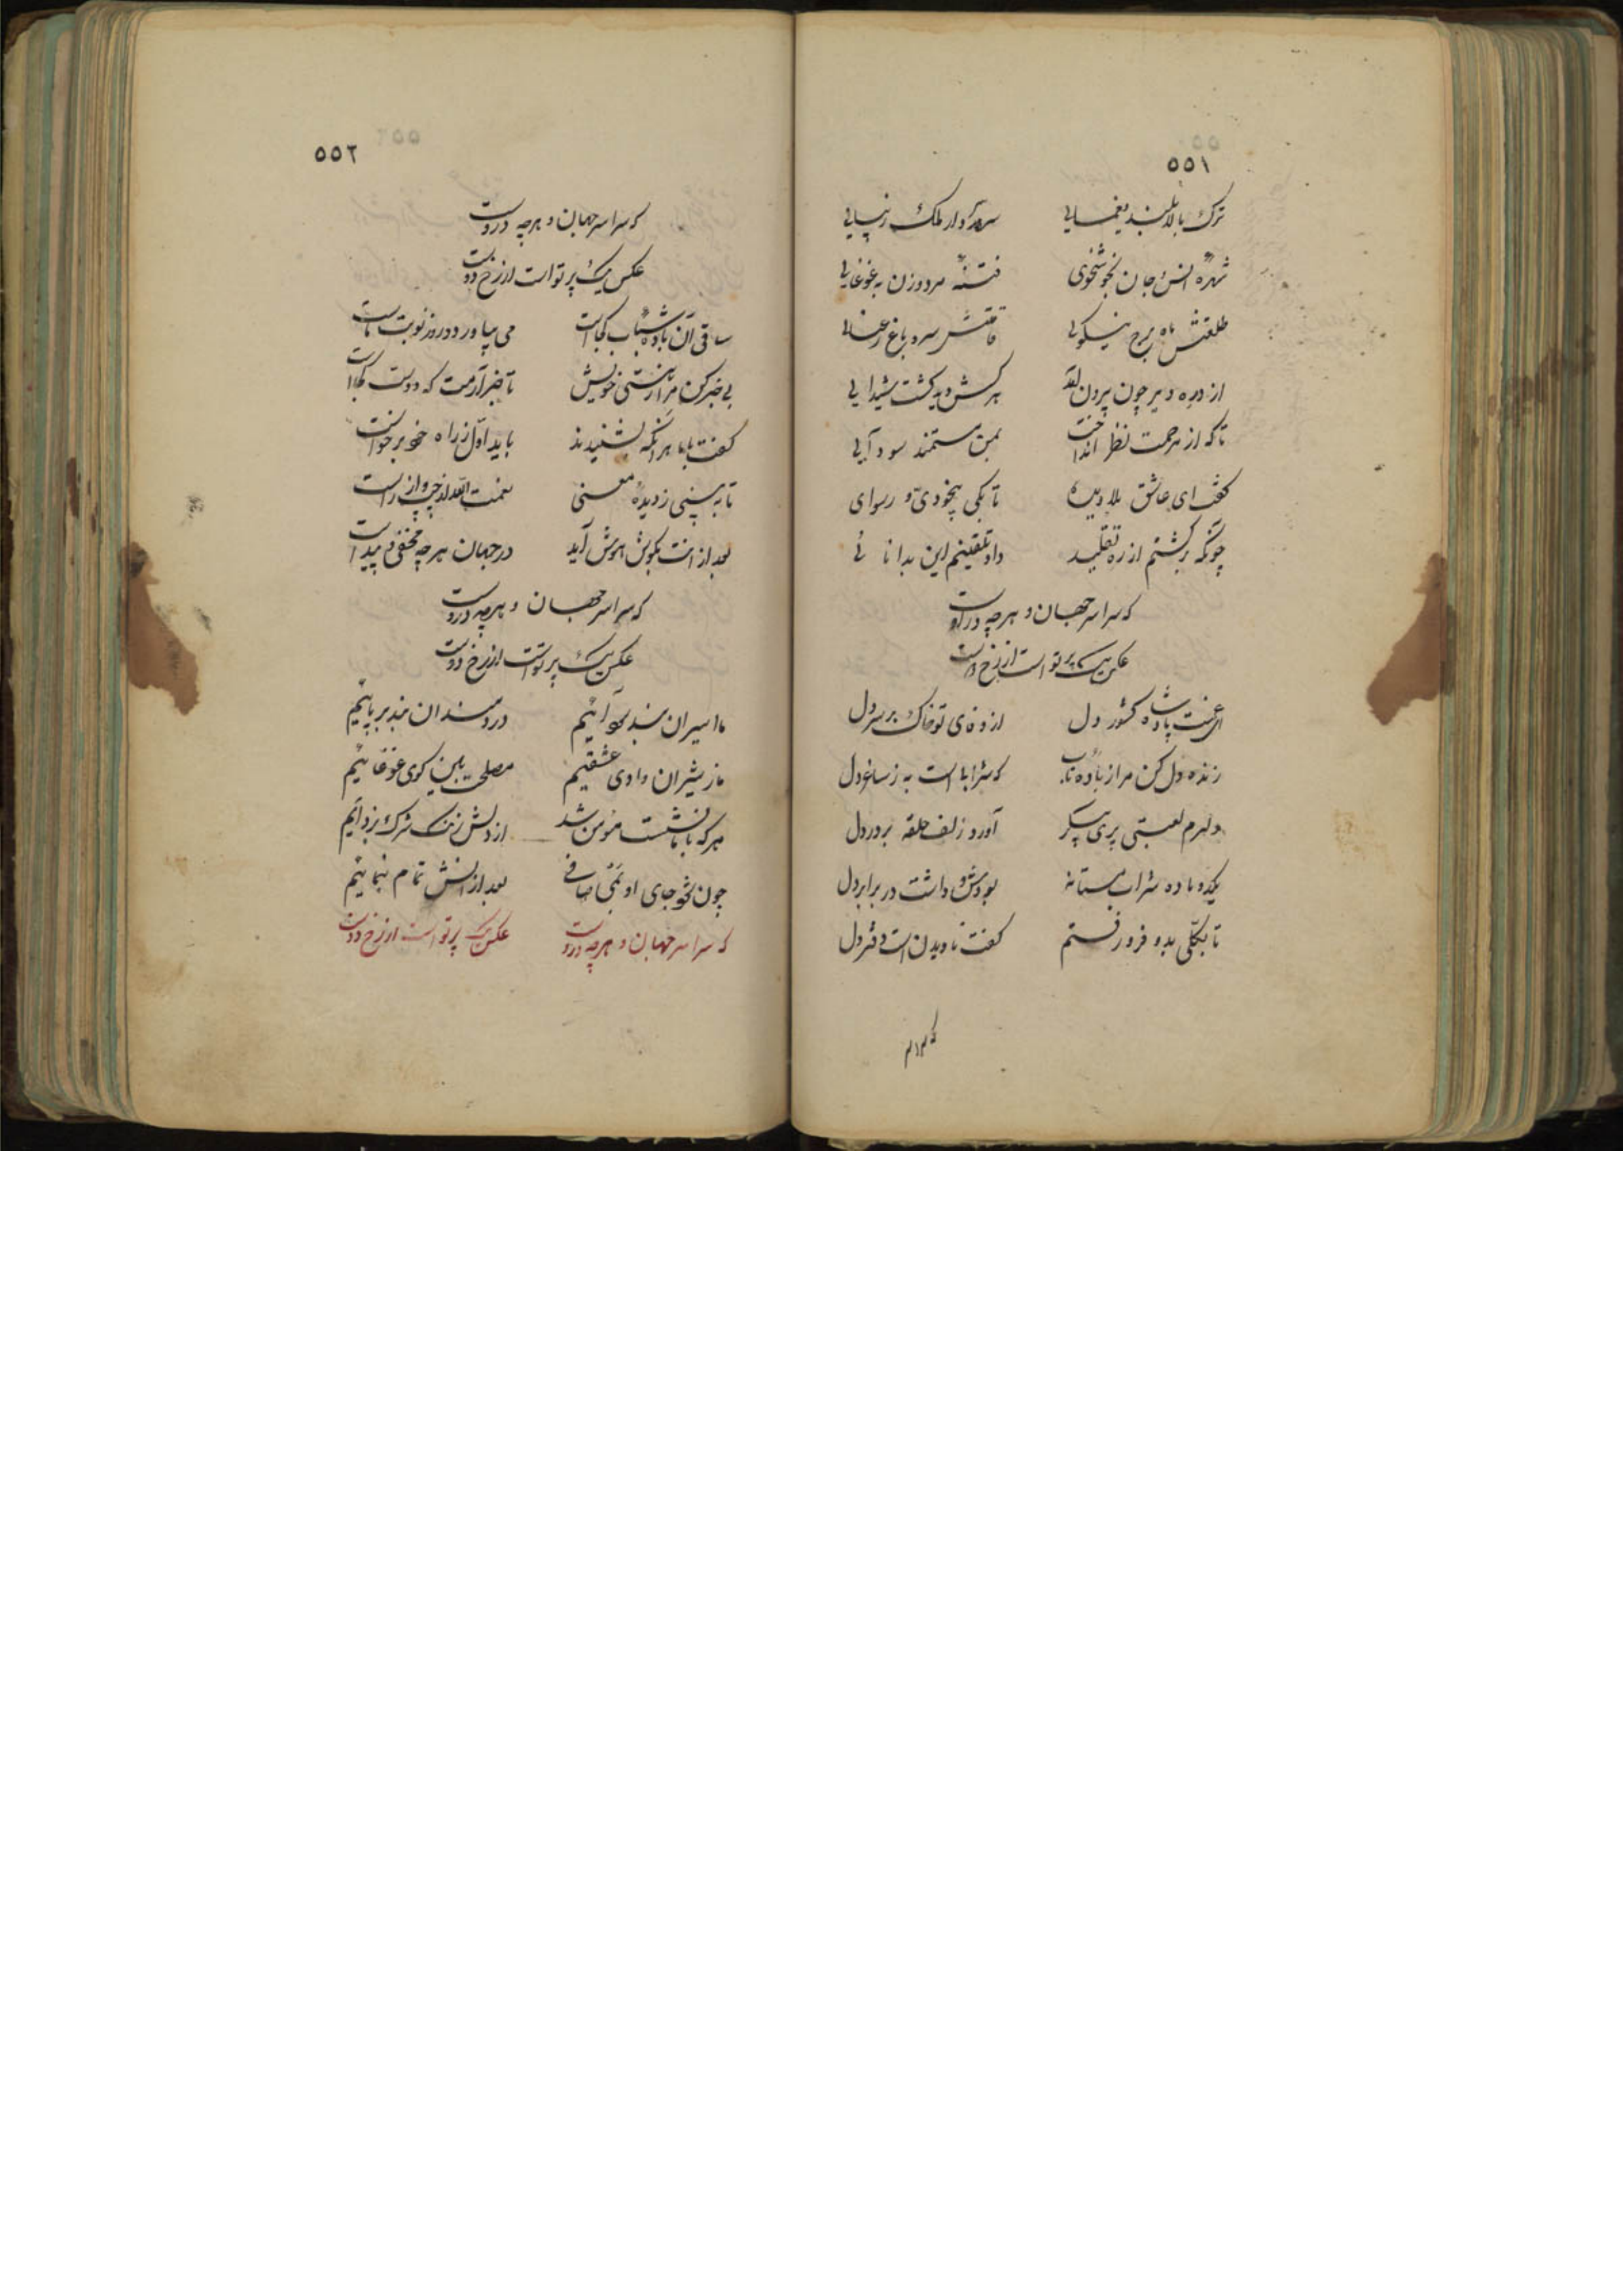 ٥٥١
ترک بالا بلند یغمایی سرو دار ملک زیبایی
شهرهٔ انس و جان بخوشخوی فتنهٔ مرد و زن به غوغایی
طلعتش ماه برج نیکویی قامتش سرو باغ رعنایی
از در دیر چون برون آمد هر کش دید گشت شیدایی
تا که از مرحمت نظر انداخت بمن مستمند سودایی
گفت ای عاشق بلا دیده تا بکی بیخودی و رسوای
چونکه برگشتم از ره تقلید داد تلقینم این بدانائی
که سراسر جهان و هرچه دروست
عکس یک پرتو است از رخ دوست
ای غمت پادشاه کشور دل از وفای تو خاک بر سر دل
زنده دل کن مرا از بادهٔ ناب که شراب است به ز ساغر دل
دلبرم لعبتی پری پیکر آورد زلف حلقه بر در دل
یکدو باده شراب مستانه بودش و داشت در برابر دل
تا بکلی بدو فرو رفتم گفت نادیدن است دفتر دل
که سراسر
٥٥٢
که سراسر جهان و هرچه دروست
عکس یک پرتو است از رخ دوست
ساقی آن بادهٔ شباب کجاست می بیاور که دور نوبت ماست
بی خبر کن مرا ز هستی خویش تا خبر آرمت که دوست کجا است
گفت با ما هر آنکه بنشیند باید اول ز راه خود برخواست
تا به بینی ز دیدهٔ معنی نعمت الله از چپ و از راست
بعد از آنت بگوش هوش آید در جهان هرچه مخفی و پیداست
که سراسر جهان و هرچه دروست
عکس یک پرتو است از رخ دوست
ما اسیران بند سودائیم دردمندان بند بر پائیم
ما ز شیران وادی عشقیم مصلحت بین کوی غوغائیم
هر که با ما نشست مومن شد از دلش زنگ شرک بزدائیم
چون بخود جای او نمی صافی بعد از آنش تمام بنمائیم
که سراسر جهان و هرچه دروست عکس یک پرتو است از رخ دوست